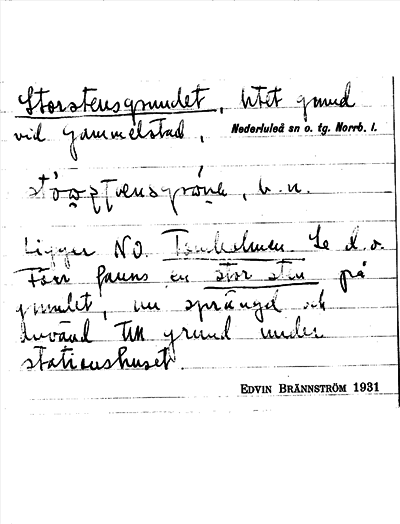 Storstensgrundet, litet grund
vid Gammelstad, Nederluleå sn o. tg. Norrb. l.
b. n.
Ligger NO Tomholmen. Se d. o.
Förr fanns en stor sten på
grundet, nu sprängd och
använd till grund under
stationshuset.
EDVIN BRÄNNSTRÖM 1931